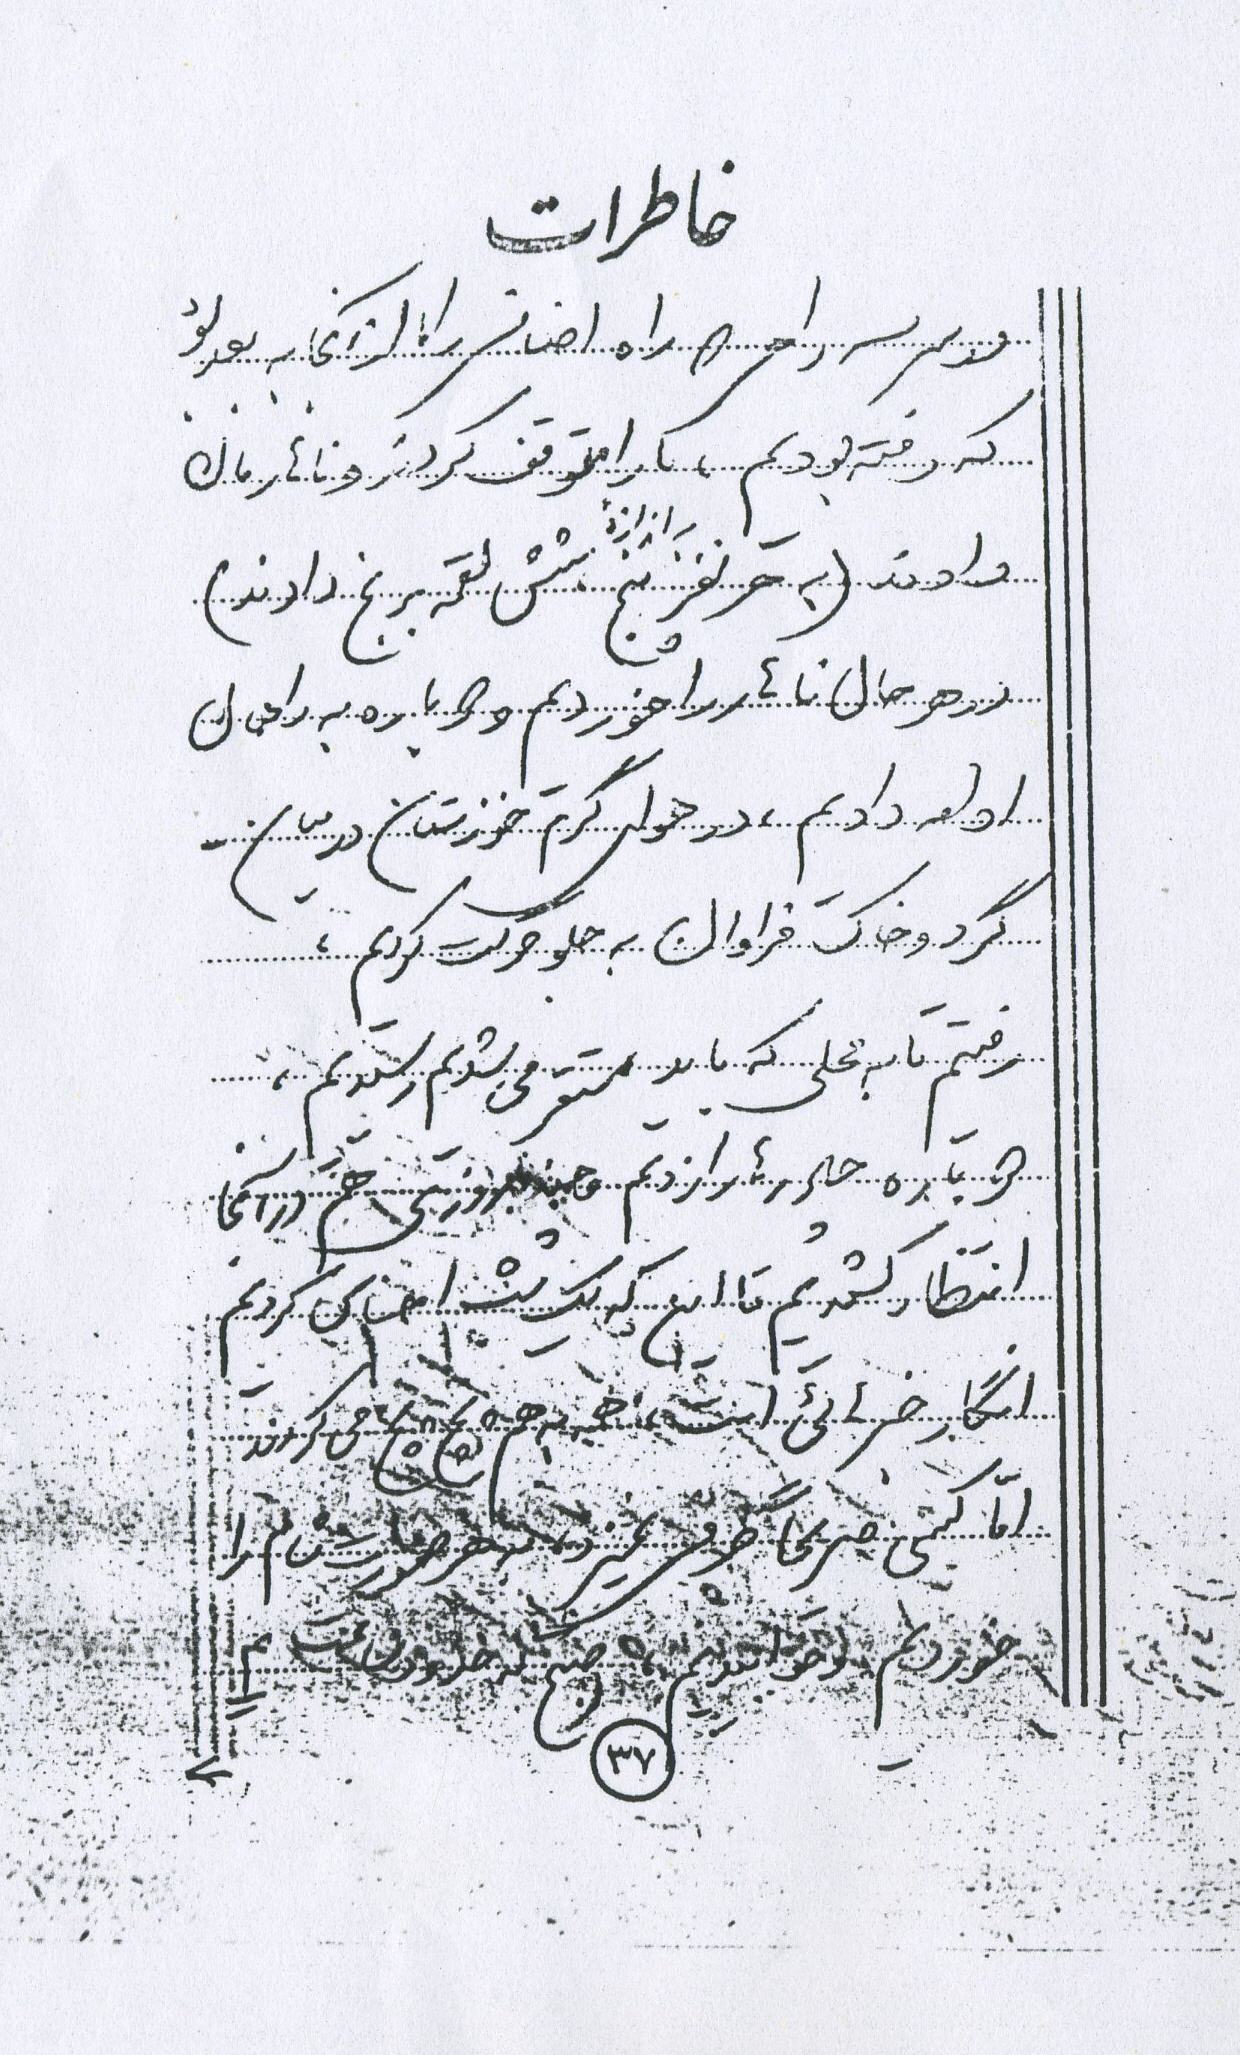 خاطرات
در سه راهی دو راه اضافی را از آنجا به بعد
که رفته بودیم ، ما را متوقف کردند و ناهارمان
دادند (به هر نفر به اندازهٔ پنج شش لقمه برنج دادند)
در هر حال ناهار را خوردیم و دوباره به راهمان
ادامه دادیم ، در هوای گرم خوزستان در میان
گرد و خاک فراوان به جلو حرکت کردیم ،
رفتیم تا به محلی که باید مستقر می شدیم رسیدیم ،
دوباره چادرها را زدیم و چند روزی هم در آنجا
انتظار کشیدیم تا این که یک شب احساس کردیم
انگار خبرهائی است ، همه به هم پچ پچ می کردند
اما کسی خبر نداشت ، به هر صورت شام را
خوردیم و خوابیدیم ، صبح که
۳۷